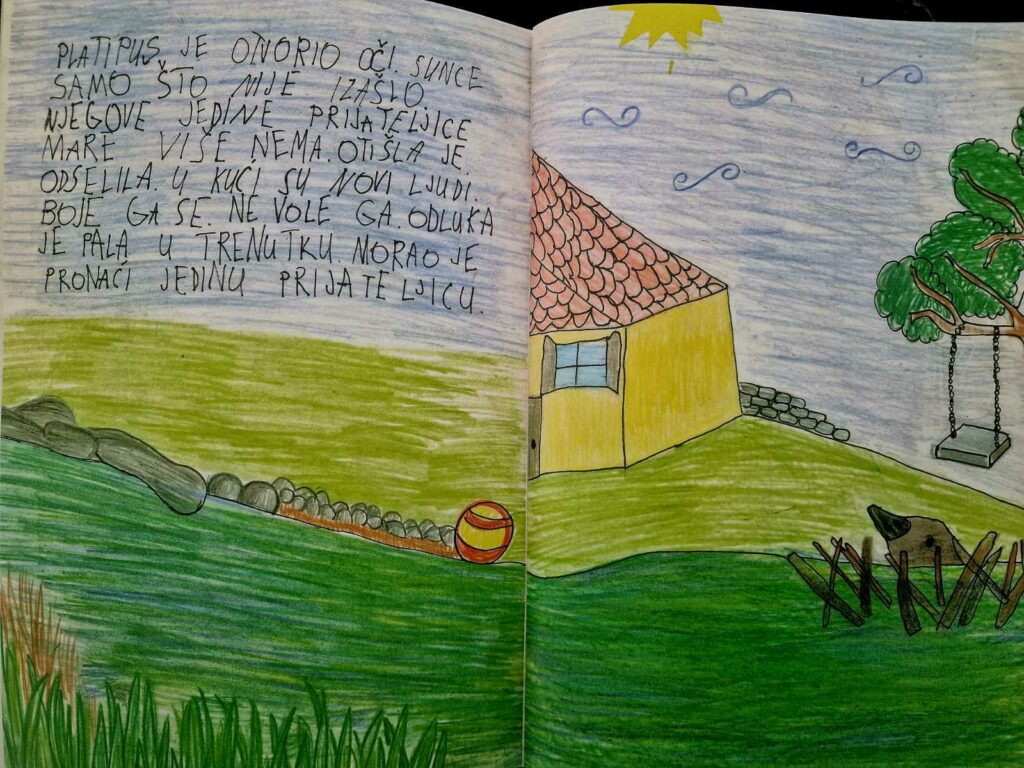 PLATIPUS JE OTVORIO OČI. SUNCE
SAMO ŠTO NIJE IZAŠLO.
NJEGOVE JEDINE PRIJATELJICE
MARE VIŠE NEMA. OTIŠLA JE.
ODSELILA. U KUĆI SU NOVI LJUDI.
BOJE GA SE. NE VOLE GA. ODLUKA
JE PALA U TRENUTKU. MORAO JE
PRONAĆI JEDINU PRIJATELJICU.